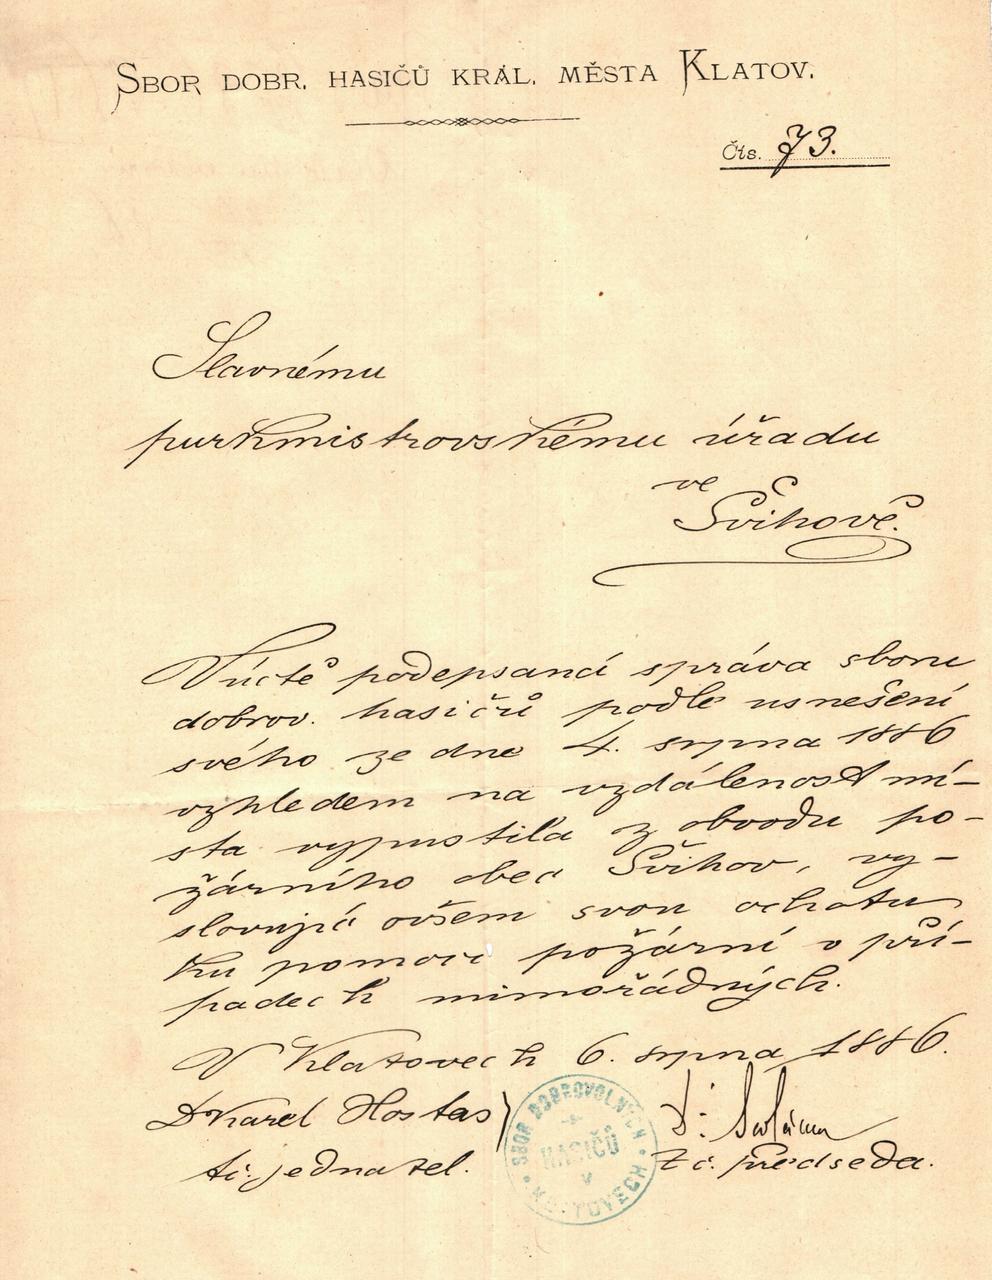 SBOR DOBR. HASIČŮ KRÁL. MĚSTA KLATOV.
Čís. 73.
Slavnému
purkmistrovskému úřadu
ve
Švihově.
V úctě podepsaná správa sboru
dobrov. hasičů podle usnešení
svého ze dne 4. srpna 1886
vzhledem na vzdálenost mí-
sta vypustila z obvodu po-
žárního obec Švihov, vy-
slovujíc ovšem svou ochotu
ku pomoci požární v pří-
padech mimořádných.
V Klatovech 6. srpna 1886.
Dr Karel Hostaš
t.č. jednatel.
SBOR DOBROVOLNÝCH
HASIČŮ
V
KLATOVECH
Dr.
t.č. předseda.